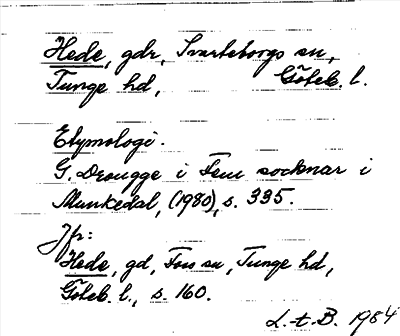 Hede, gdr, Svarteborgs sn,
Tunge hd, Göteb. l.
Etymologi.
G. Drougge i Fem socknar i
Munkedal, (1980), s. 335.
Jfr:
Hede, gd, Foss sn, Tunge hd,
Göteb. l., s. 160.
L.-t. B. 1984